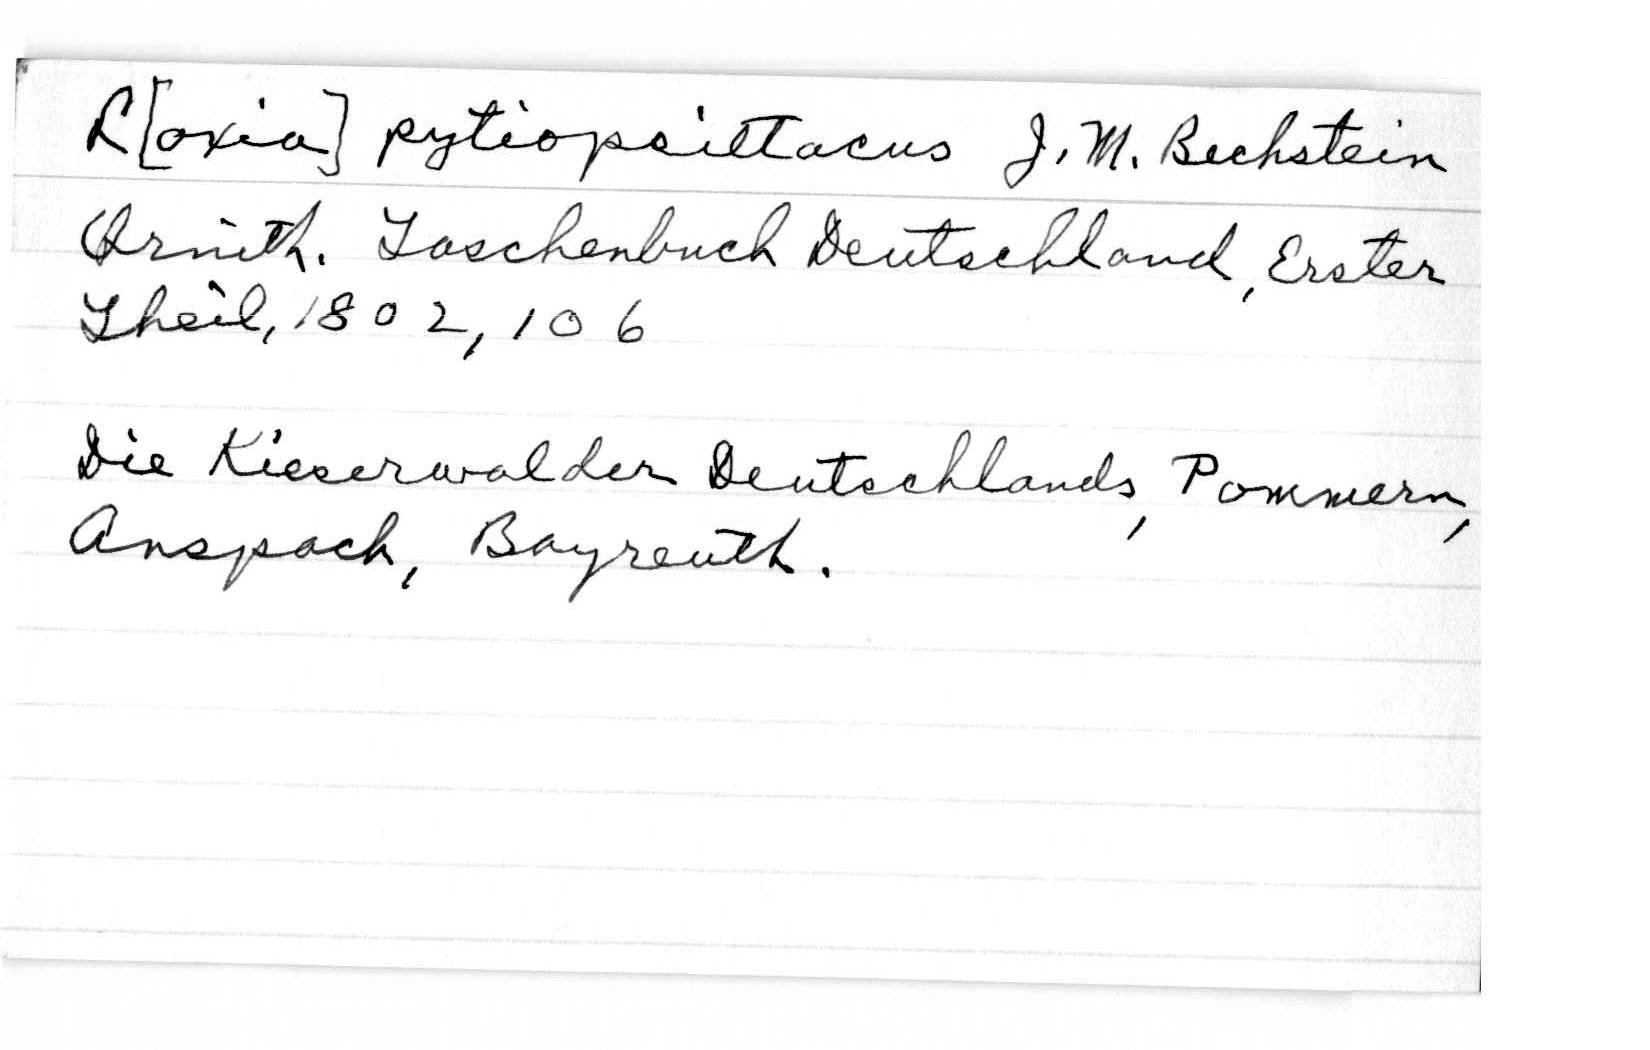 L[oxia] pytiopsittacus J. M. Bechstein
Ornith. Taschenbuch Deutschland, Erster
Theil, 1802, 106
Die Kieserwalder Deutschlands, Pommern,
Anspach, Bayreuth.